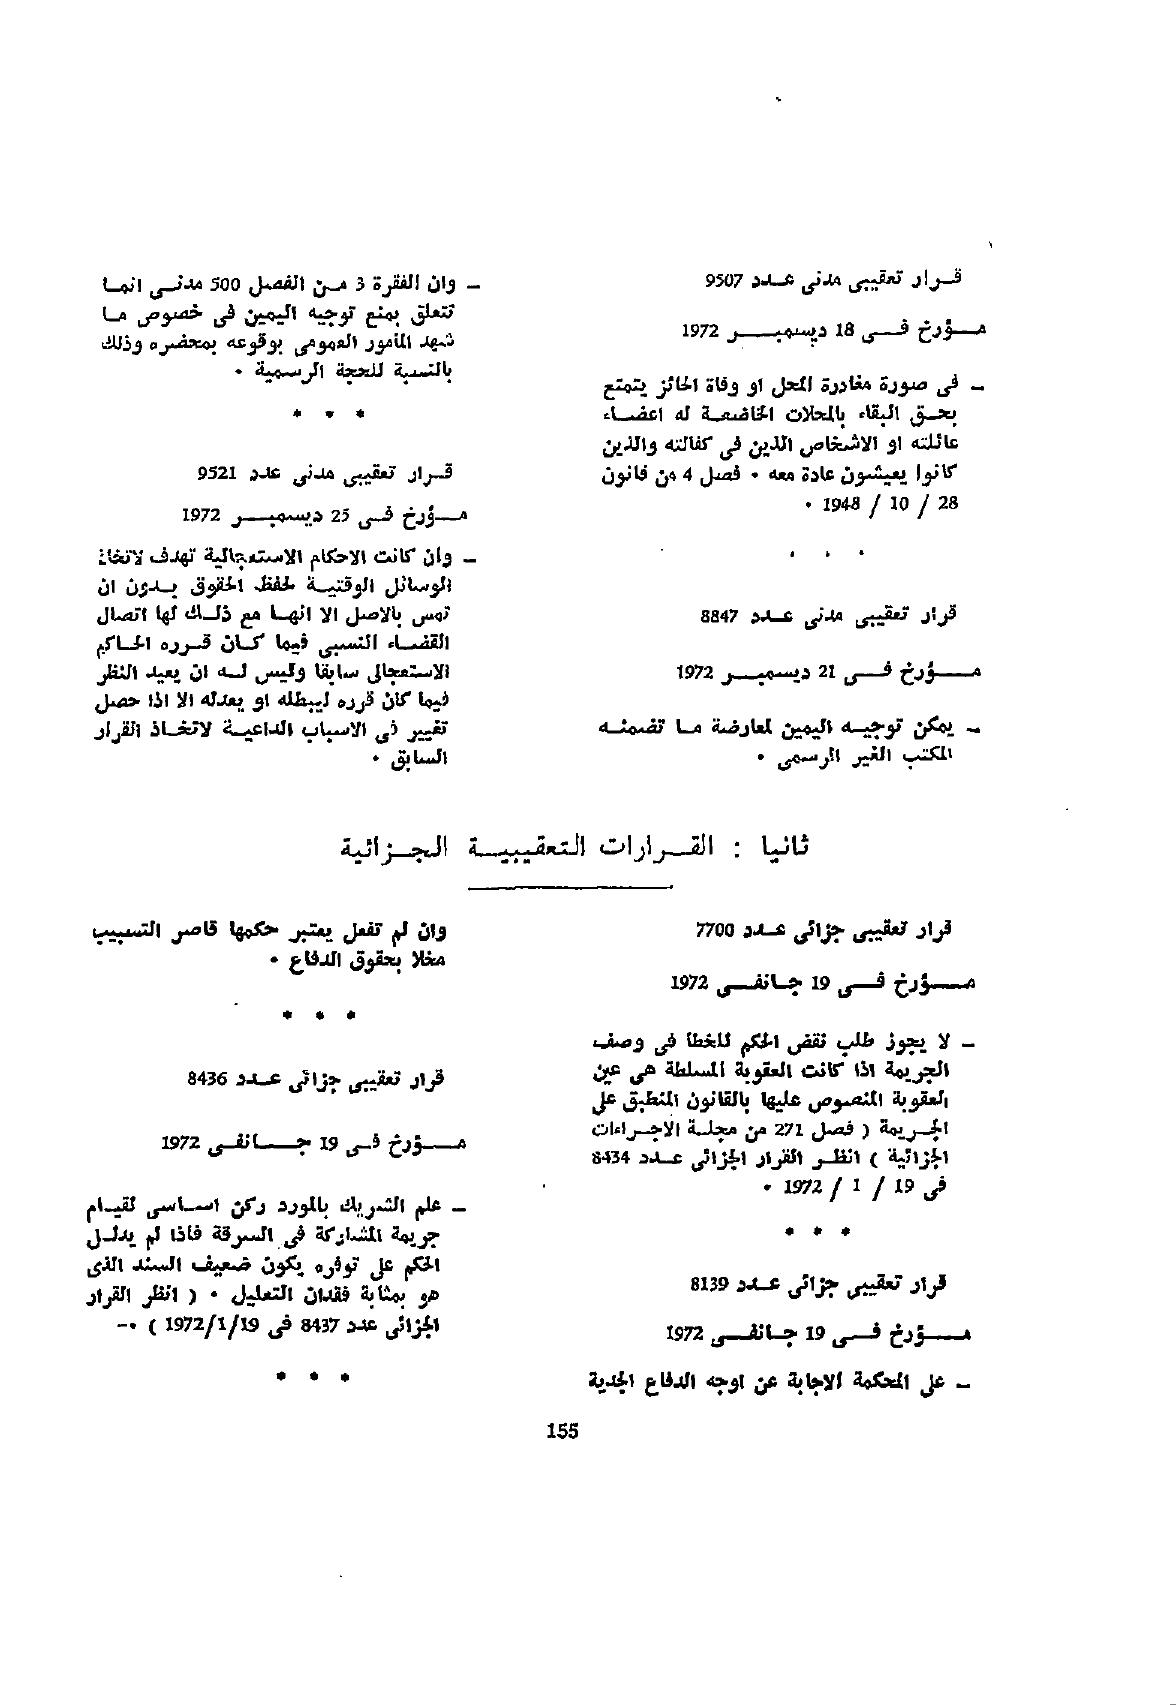 قرار تعقيبى مدنى عدد 9507
مؤرخ فى 18 ديسمبر 1972
– فى صورة مغادرة المحل او وفاة الحائز يتمتع
بحق البقاء بالمحلات الخاضعة له اعضاء
عائلته او الاشخاص الذين فى كفالته والذين
كانوا يعيشون عادة معه . فصل 4 من قانون
28 / 10 / 1948 .
* * *
قرار تعقيبى مدنى عدد 8847
مؤرخ فى 21 ديسمبر 1972
– يمكن توجيه اليمين لمعارضة ما تضمنه
المكتب الغير الرسمى .
– وان الفقرة 3 من الفصل 500 مدنى انما
تتعلق بمنع توجيه اليمين فى خصوص ما
شهد المأمور العمومى بوقوعه بمحضره وذلك
بالنسبة للحجة الرسمية .
* * *
قرار تعقيبى مدنى عدد 9521
مؤرخ فى 25 ديسمبر 1972
– وان كانت الاحكام الاستعجالية تهدف لاتخاذ
الوسائل الوقتية لحفظ الحقوق بدون ان
تمس بالاصل الا انها مع ذلك لها اتصال
القضاء النسبى فيما كان قرره الحاكم
الاستعجالى سابقا وليس له ان يعيد النظر
فيما كان قرره ليبطله او يعدله الا اذا حصل
تغيير فى الاسباب الداعية لاتخاذ القرار
السابق .
ثانيا : القرارات التعقيبية الجزائية
قرار تعقيبى جزائى عدد 7700
مؤرخ فى 19 جانفى 1972
– لا يجوز طلب نقض الحكم للخطأ فى وصف
الجريمة اذا كانت العقوبة المسلطة هى عين
العقوبة المنصوص عليها بالقانون المنطبق على
الجريمة ( فصل 271 من مجلة الاجراءات
الجزائية ) انظر القرار الجزائى عدد 8434
فى 19 / 1 / 1972 .
* * *
قرار تعقيبى جزائى عدد 8139
مؤرخ فى 19 جانفى 1972
– على المحكمة الاجابة عن اوجه الدفاع الجدية
وان لم تفعل يعتبر حكمها قاصر التسبيب
مخلا بحقوق الدفاع .
* * *
قرار تعقيبى جزائى عدد 8436
مؤرخ فى 19 جانفى 1972
– علم الشريك بالمورد ركن اساسى لقيام
جريمة المشاركة فى السرقة فاذا لم يدلل
الحكم على توفره يكون ضعيف السند الذى
هو بمثابة فقدان التعليل . ( انظر القرار
الجزائى عدد 8437 فى 1972/1/19 ) .–
* * *
155